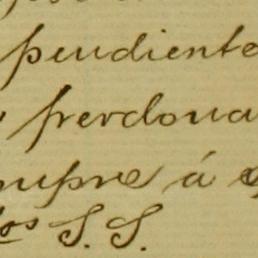 pendiente
perdona
mpre á
os S. S.